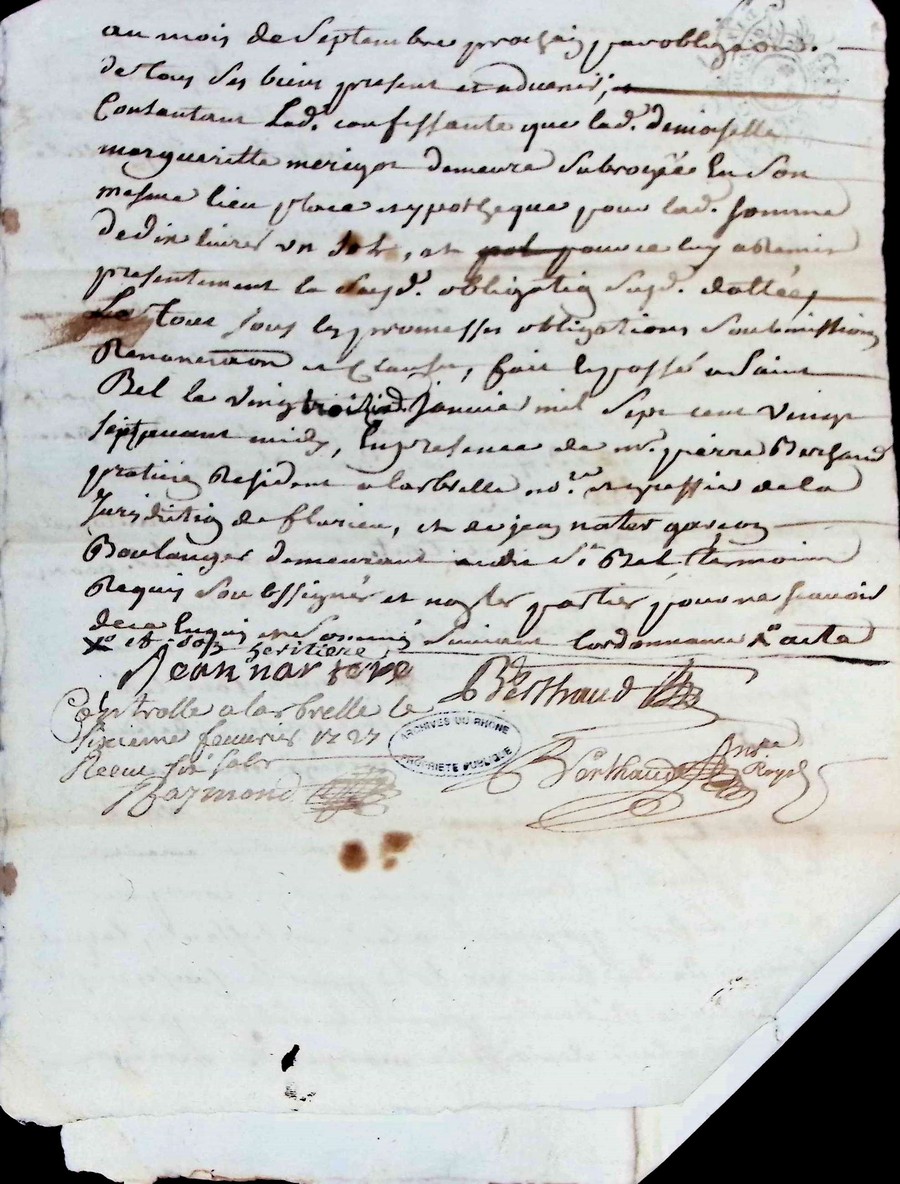 au mois de Septembre prochain par obligaon.
de tous ses biens present et advenir,
Consentant Lad. confessante que lad. demoiselle
margueritte merigot demeure Subrogée En Son
mesme lieu place et ypotheque pour lad. somme
de dix livres un sol, et pol pour ce luy a remis
presentement la susd. obligation susd. dattée,
Le tout sous les promesses obligations Soubmissions
Renonciaon et Clauses, fait et passé a Saint
Bel le vingt troizie Janvier mil Sept cent vingt
sept avant midy, En presence de me. pierre Berthaud
praticien Resident a larbrelle et greffier de la
Jurisdiction de fleurieu, et de jean garcon
Boulanger demeurant audit St. Bel temoins
Requis Soussignés et non les parties pour ne scavoir
de ce Enquis et Sommés Suivant Lordonnance
heritiere
Jean Berthaud
Controllé a larbrelle le
sixieme feuvrier 1727
Receu six sols
Raymond
Berthaud Nore Royal
ARCHIVES DU RHONE
PROPRIETE PUBLIQUE